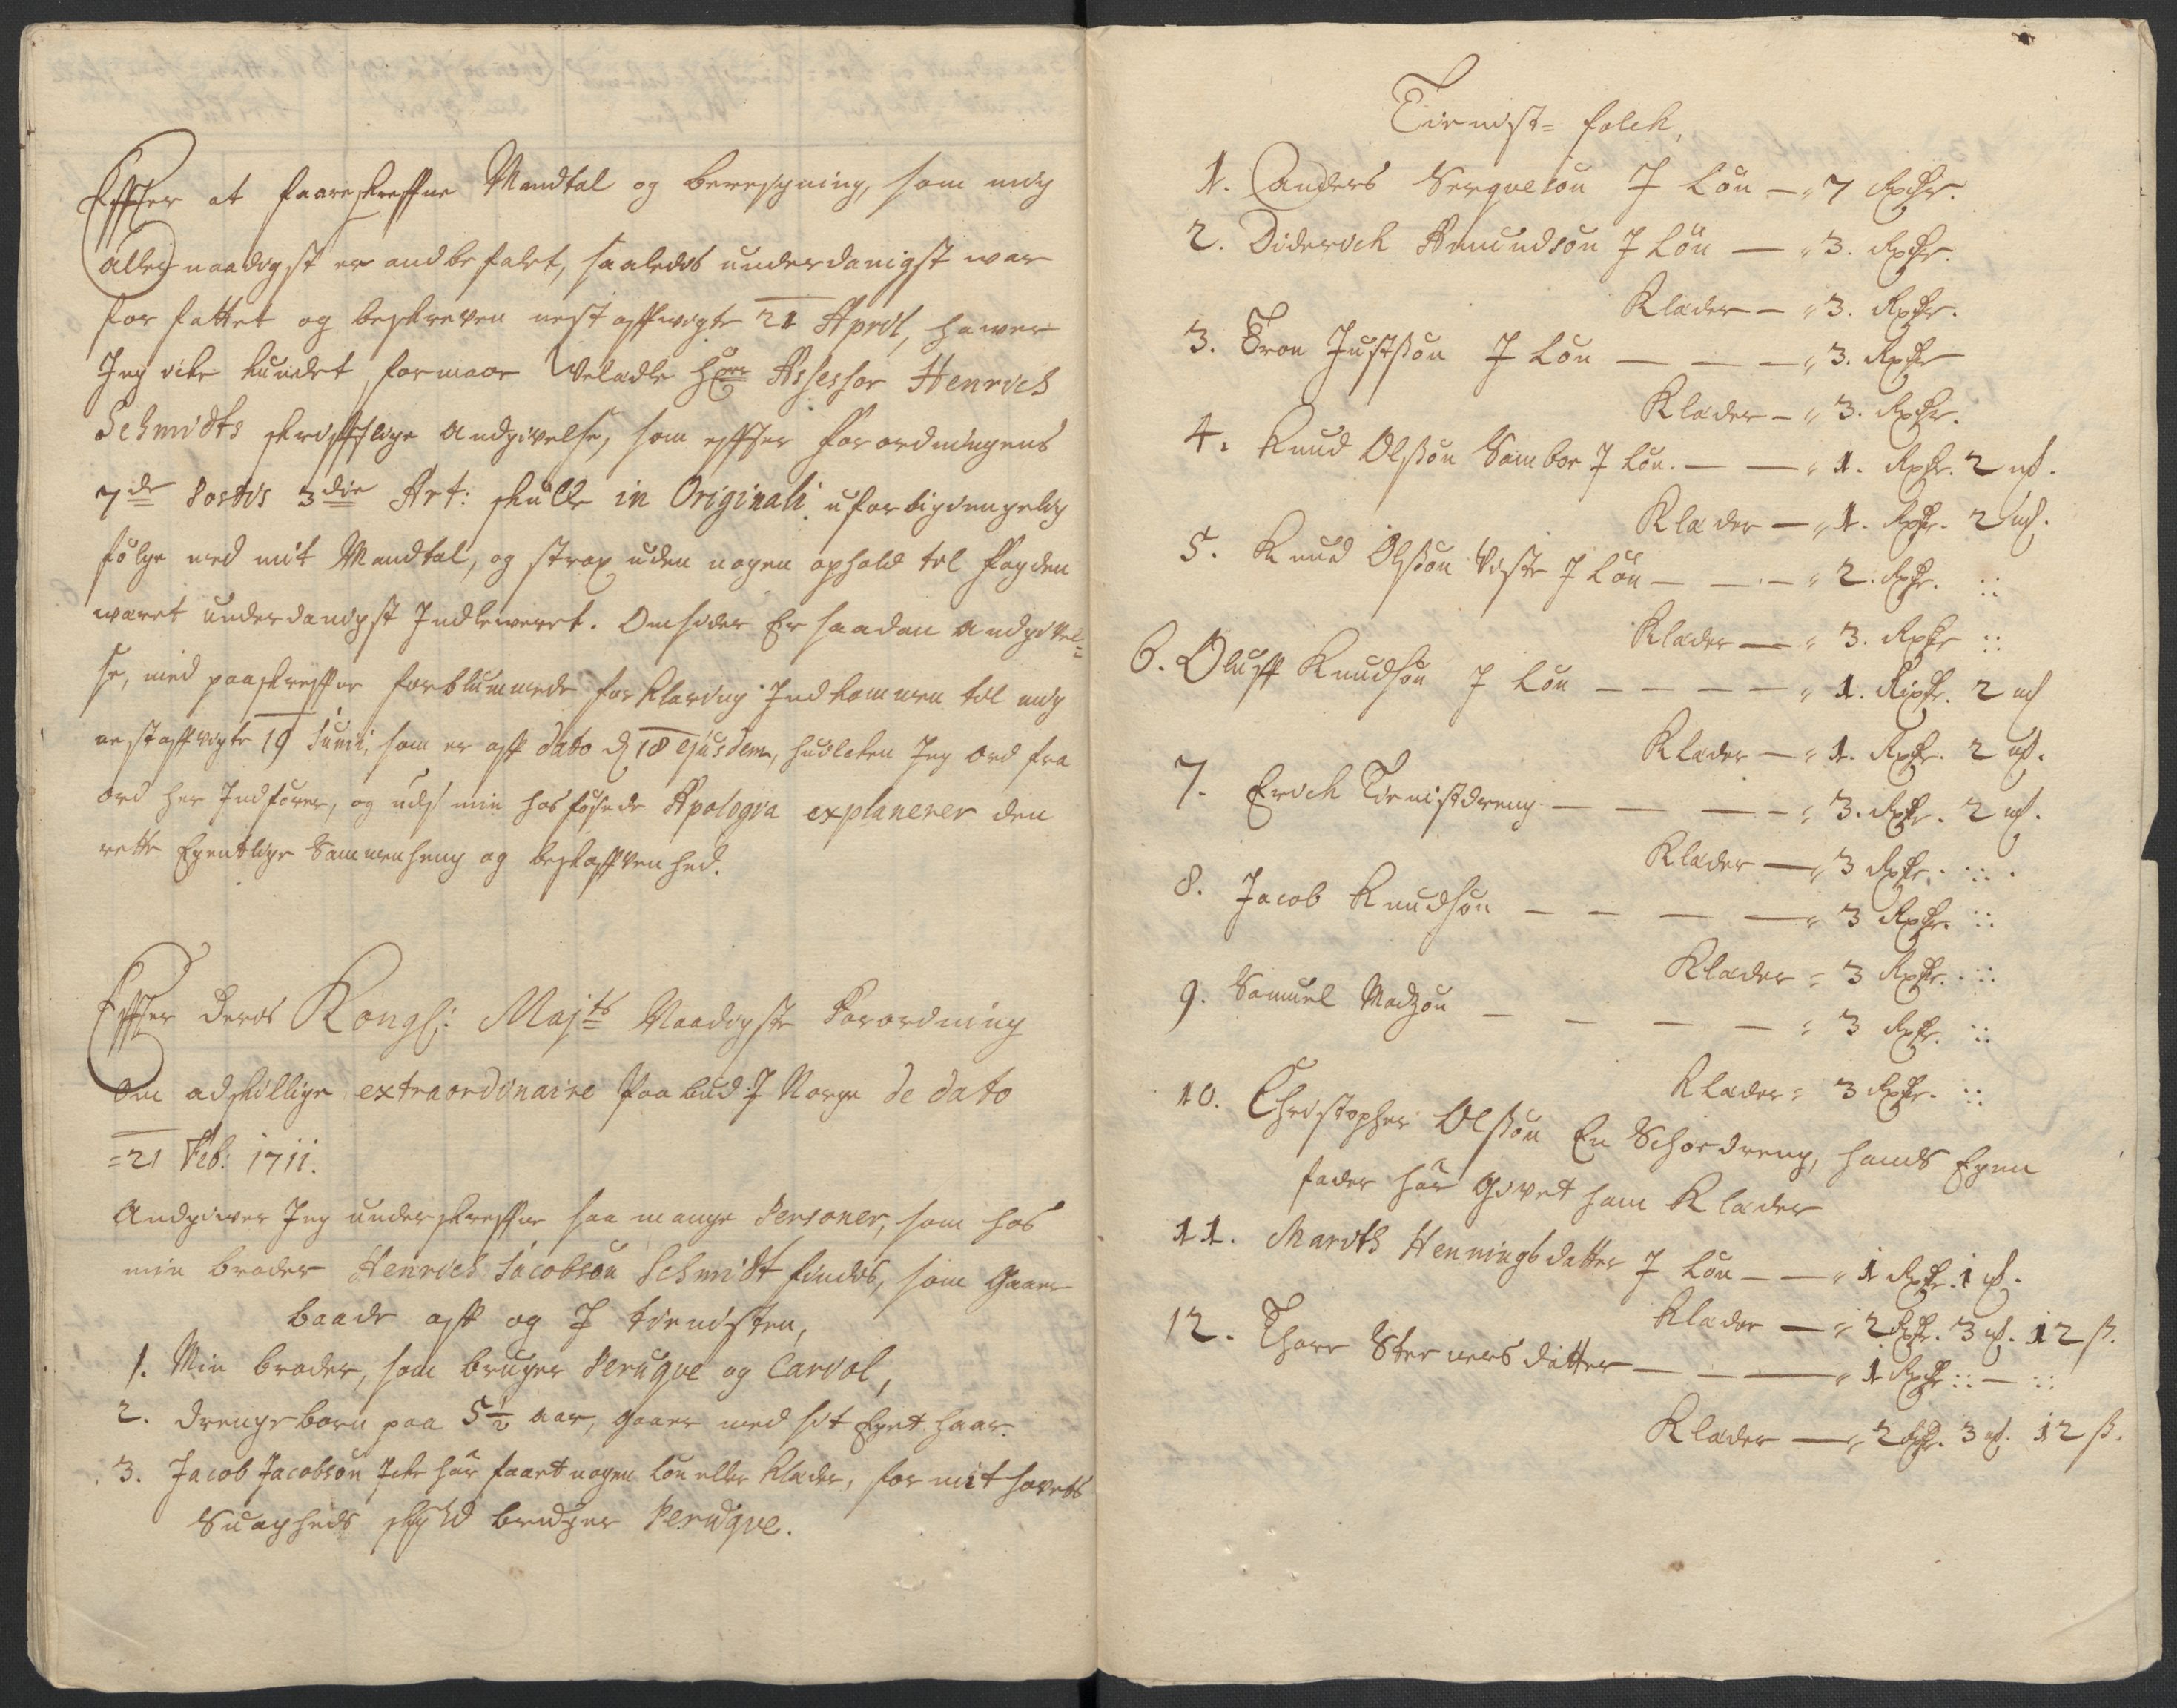 Effter at foreskreffne Mandtal og beregning, som mig
aller naadigst er andbefalet, saaledis underdanigst war
forfattet og beskreven nest affvigte 21 April, hawer
Jeg icke kundet formaae Welædle Hr Assessor Henrich
Schmidts skrifftlige Andgivelse, som effter forordningens
7de Postis 3die Art: skulle in Originali
følge med mit Mandtal, og strax uden nogen ophold til fogden
waret underdanigst Indlewert. Omsider Er saadan Andgivel=
se, med paaskreffne forblummede forklaring Indkommen til mig
nestaffvigte 19 Junii, som er aff dato d 18 ejusdem, huilcken Jeg ord fra
ord her Indfører, og udj min hosføyede Apologia explanerer den
rette Egentlige Sammenheng og beskaffenhed.
Effter Deris Kongl: Majts Naadigste Forordning
Om adskillige extraordinaire Paabud J Norge de dato
=21 Feb: 1711.
Andgiver Jeg underskreffne saa mange Personer, som hos
min broder Henrich Jacobsøn Schmidt findis, som gaaer
baade aff og J tienisten,
1. Min broder, som bruger Peruqve og Cariol,
2. Drengebarn paa 5½ aar, gaaer med sit Eget haar.
3. Jacob Jacobsøn Icke har faaet nogen løn eller klæder, for mit hovets
Suagheds skyld bruger Peruqve.
Tienist= folck,
1. Anders Serquesøn J Løn — 7 Rixdr.
2. Diderich Amundsøn J Løn — 3. Rixdr.
Klæder — 3. Rixdr.
3. Tron Justsøn J Løn — — — 3. Rixdr
Klæder — 3. Rixdr.
4. Knud Olssøn Sambor J Løn. — — 1. Rixdr. 2 mk.
Klæder — 1. Rixdr. 2 mk.
5. Knud Olssøn Viste J Løn — — 2. Rixdr. ::
Klæder — 3. Rixdr ::
6. Oluff Knudsøn J Løn — — — — 1. Rixdr. 2 mk
Klæder — 1. Rixdr. 2 mk.
7. Erich Tienistdreng — — — — 3. Rixdr. 2 mk.
Klæder — 3 Rixdr. ::
8. Jacob Knudsøn — — — — 3 Rixdr. ::
Klæder = 3 Rixdr. ::
9. Samuel Madzøn — — — — 3 Rixdr. ::
Klæder = 3 Rixdr. ::
10. Christopher Olssøn En Schoedreng, hands Egen
fader har givet ham Klæder
11. Marith Henningsdatter J Løn — — 1 Rixdr. 1 mk.
Klæder — 2 Rixdr. 3 mk. 12 ß.
12. Thore Sternersdatter — — — 1 Rixdr :: — ::
Klæder — 2 Rixdr. 3 mk. 12 ß.